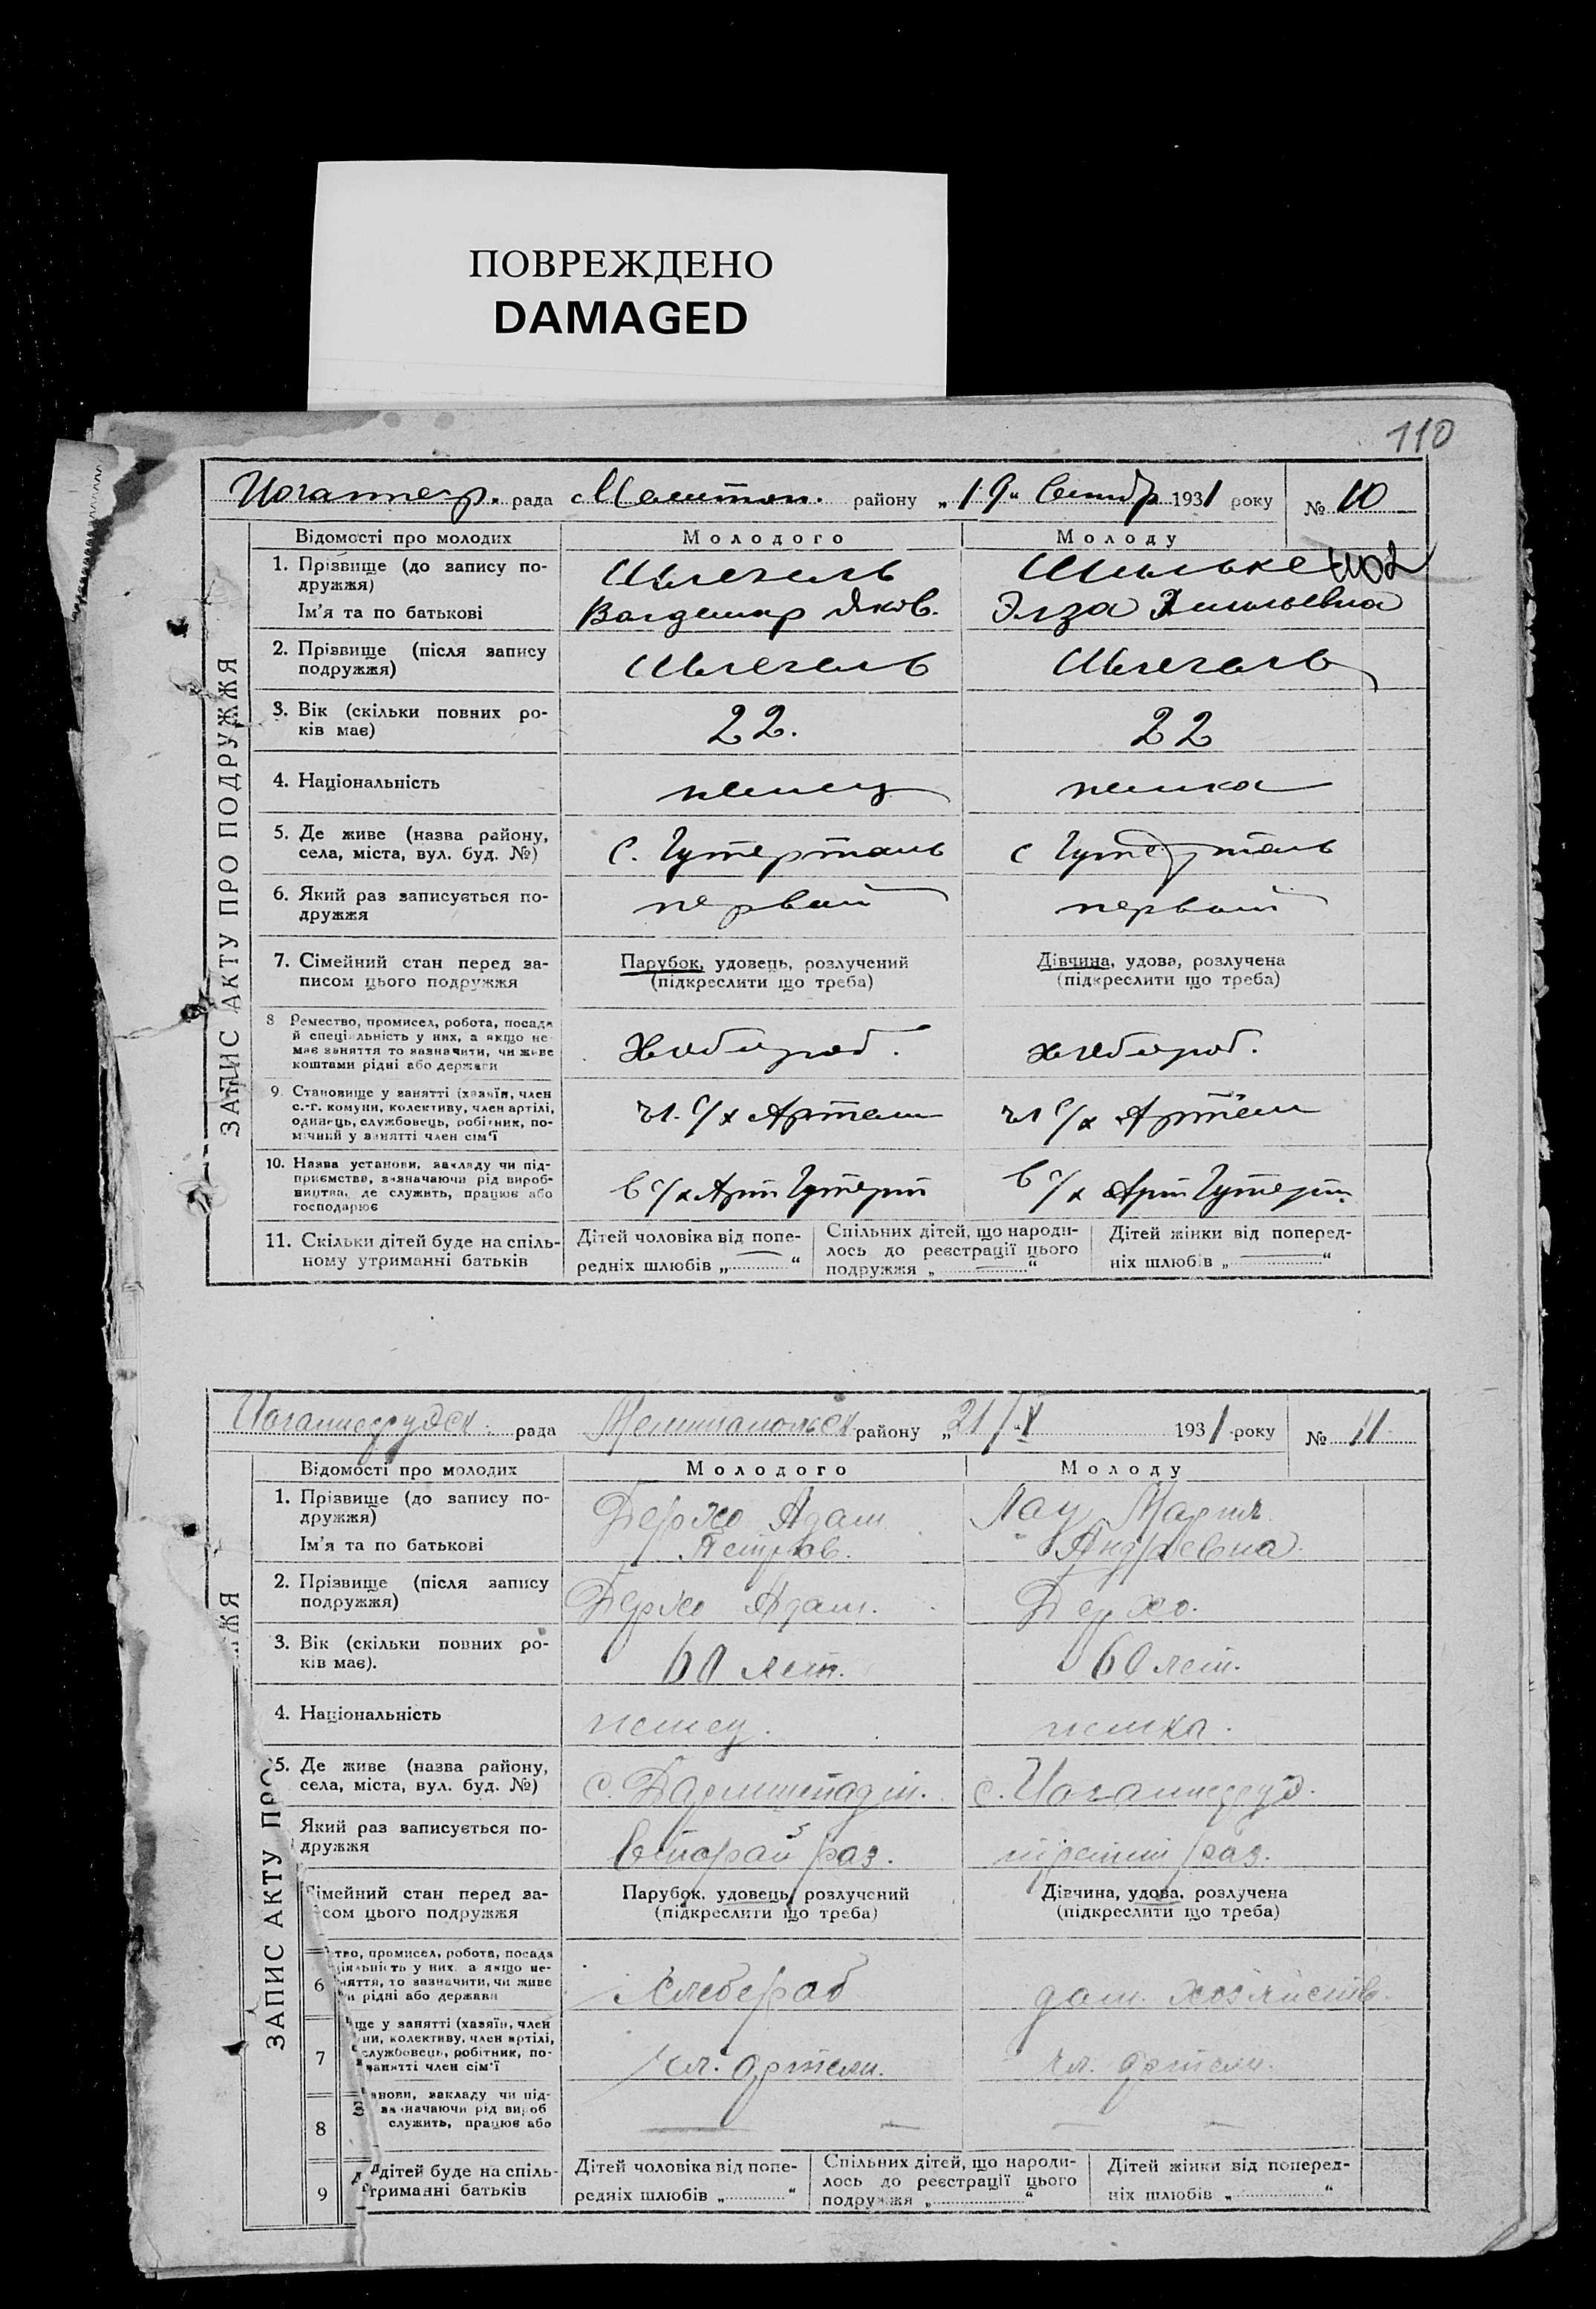 ПОВРЕЖДЕНО
DAMAGED
110
Иоганнер. рада Мелитоп. району „19“ Сентяб 1931 року № 10
ЗАПИС АКТУ ПРО ПОДРУЖЖЯ
Відомості про молодих Молодого Молоду
1. Прізвище (до запису по-
дружжя) Шлегель Шильке
Ім'я та по батькові Вольдемар Яков. Элза
2. Прізвище (після запису
подружжя) Шлегель Шлегель
3. Вік (скільки повних ро-
ків має) 22. 22
4. Національність немец немка
5. Де живе (назва району,
села, міста, вул. буд. №) с. Гутерталь с Гутерталь
6. Який раз записується по-
дружжя первый первый
7. Сімейний стан перед за-
писом цього подружжя
Парубок, удовець, розлучений
(підкреслити що треба)
Дівчина, удова, розлучена
(підкреслити що треба)
8 Ремество, промисел, робота, посада
й спеціяльність у них, а якщо не
має заняття то зазначити, чи живе
коштами рідні або держави
Хлебороб. хлебороб.
9. Становище у занятті (хазяїн, член
с.-г. комуни, колективу, член артілі,
одинець, службовець, робітник, по-
мічний у занятті член сім'ї
чл. с/х Артели чл с/х Артели
10. Назва установи, закладу чи під-
приємства, зазначаючи рід вироб-
ництва, де служить, працює або
господарює
в с/х Арт Гутерт в с/х Арт Гутерт.
11. Скільки дітей буде на спіль-
ному утриманні батьків
Дітей чоловіка від попе-
редніх шлюбів „ — “
Спільних дітей, що народи-
лось до реєстрації цього
подружжя „ — “
Дітей жінки від поперед-
ніх шлюбів „ — “
Иоганнесрудск. рада Мелитопольск району „21/X 1931 року № 11
ЗАПИС АКТУ ПРО
ЖЯ
Відомості про молодих Молодого Молоду
1. Прізвище (до запису по-
дружжя) Дерхо Адам Лау Мария
Ім'я та по батькові Петров. Андреевна
2. Прізвище (після запису
подружжя) Дерхо Адам. Дерхо.
3. Вік (скільки повних ро-
ків має). 60 лет. 60 лет.
4. Національність немец. немка.
5. Де живе (назва району,
села, міста, вул. буд. №) с. Дармштадт. с. Иоганнесруд.
Який раз записується по-
дружжя второй раз. третий раз.
Сімейний стан перед за-
сом цього подружжя
Парубок, удовець, розлучений
(підкреслити що треба)
Дівчина, удова, розлучена
(підкреслити що треба)
тво, промисел, робота, посада
іяльність у них, а якщо не-
6 няття, то зазначити, чи живе
и рідні або держави
Хлебораб дом. хозяйств.
ище у занятті (хазяїн, член
ни, колективу, член артілі,
7 службовець, робітник, по-
занятті член сім'ї
чл. артели. чл. артели.
анови, закладу чи під-
зазначаючи рід вироб
8 служить, працює або
— — — —
дітей буде на спіль-
9 триманні батьків
Дітей чоловіка від попе-
редніх шлюбів „ “
Спільних дітей, що народи-
лось до реєстрації цього
подружжя „ “
Дітей жінки від поперед-
ніх шлюбів „ “